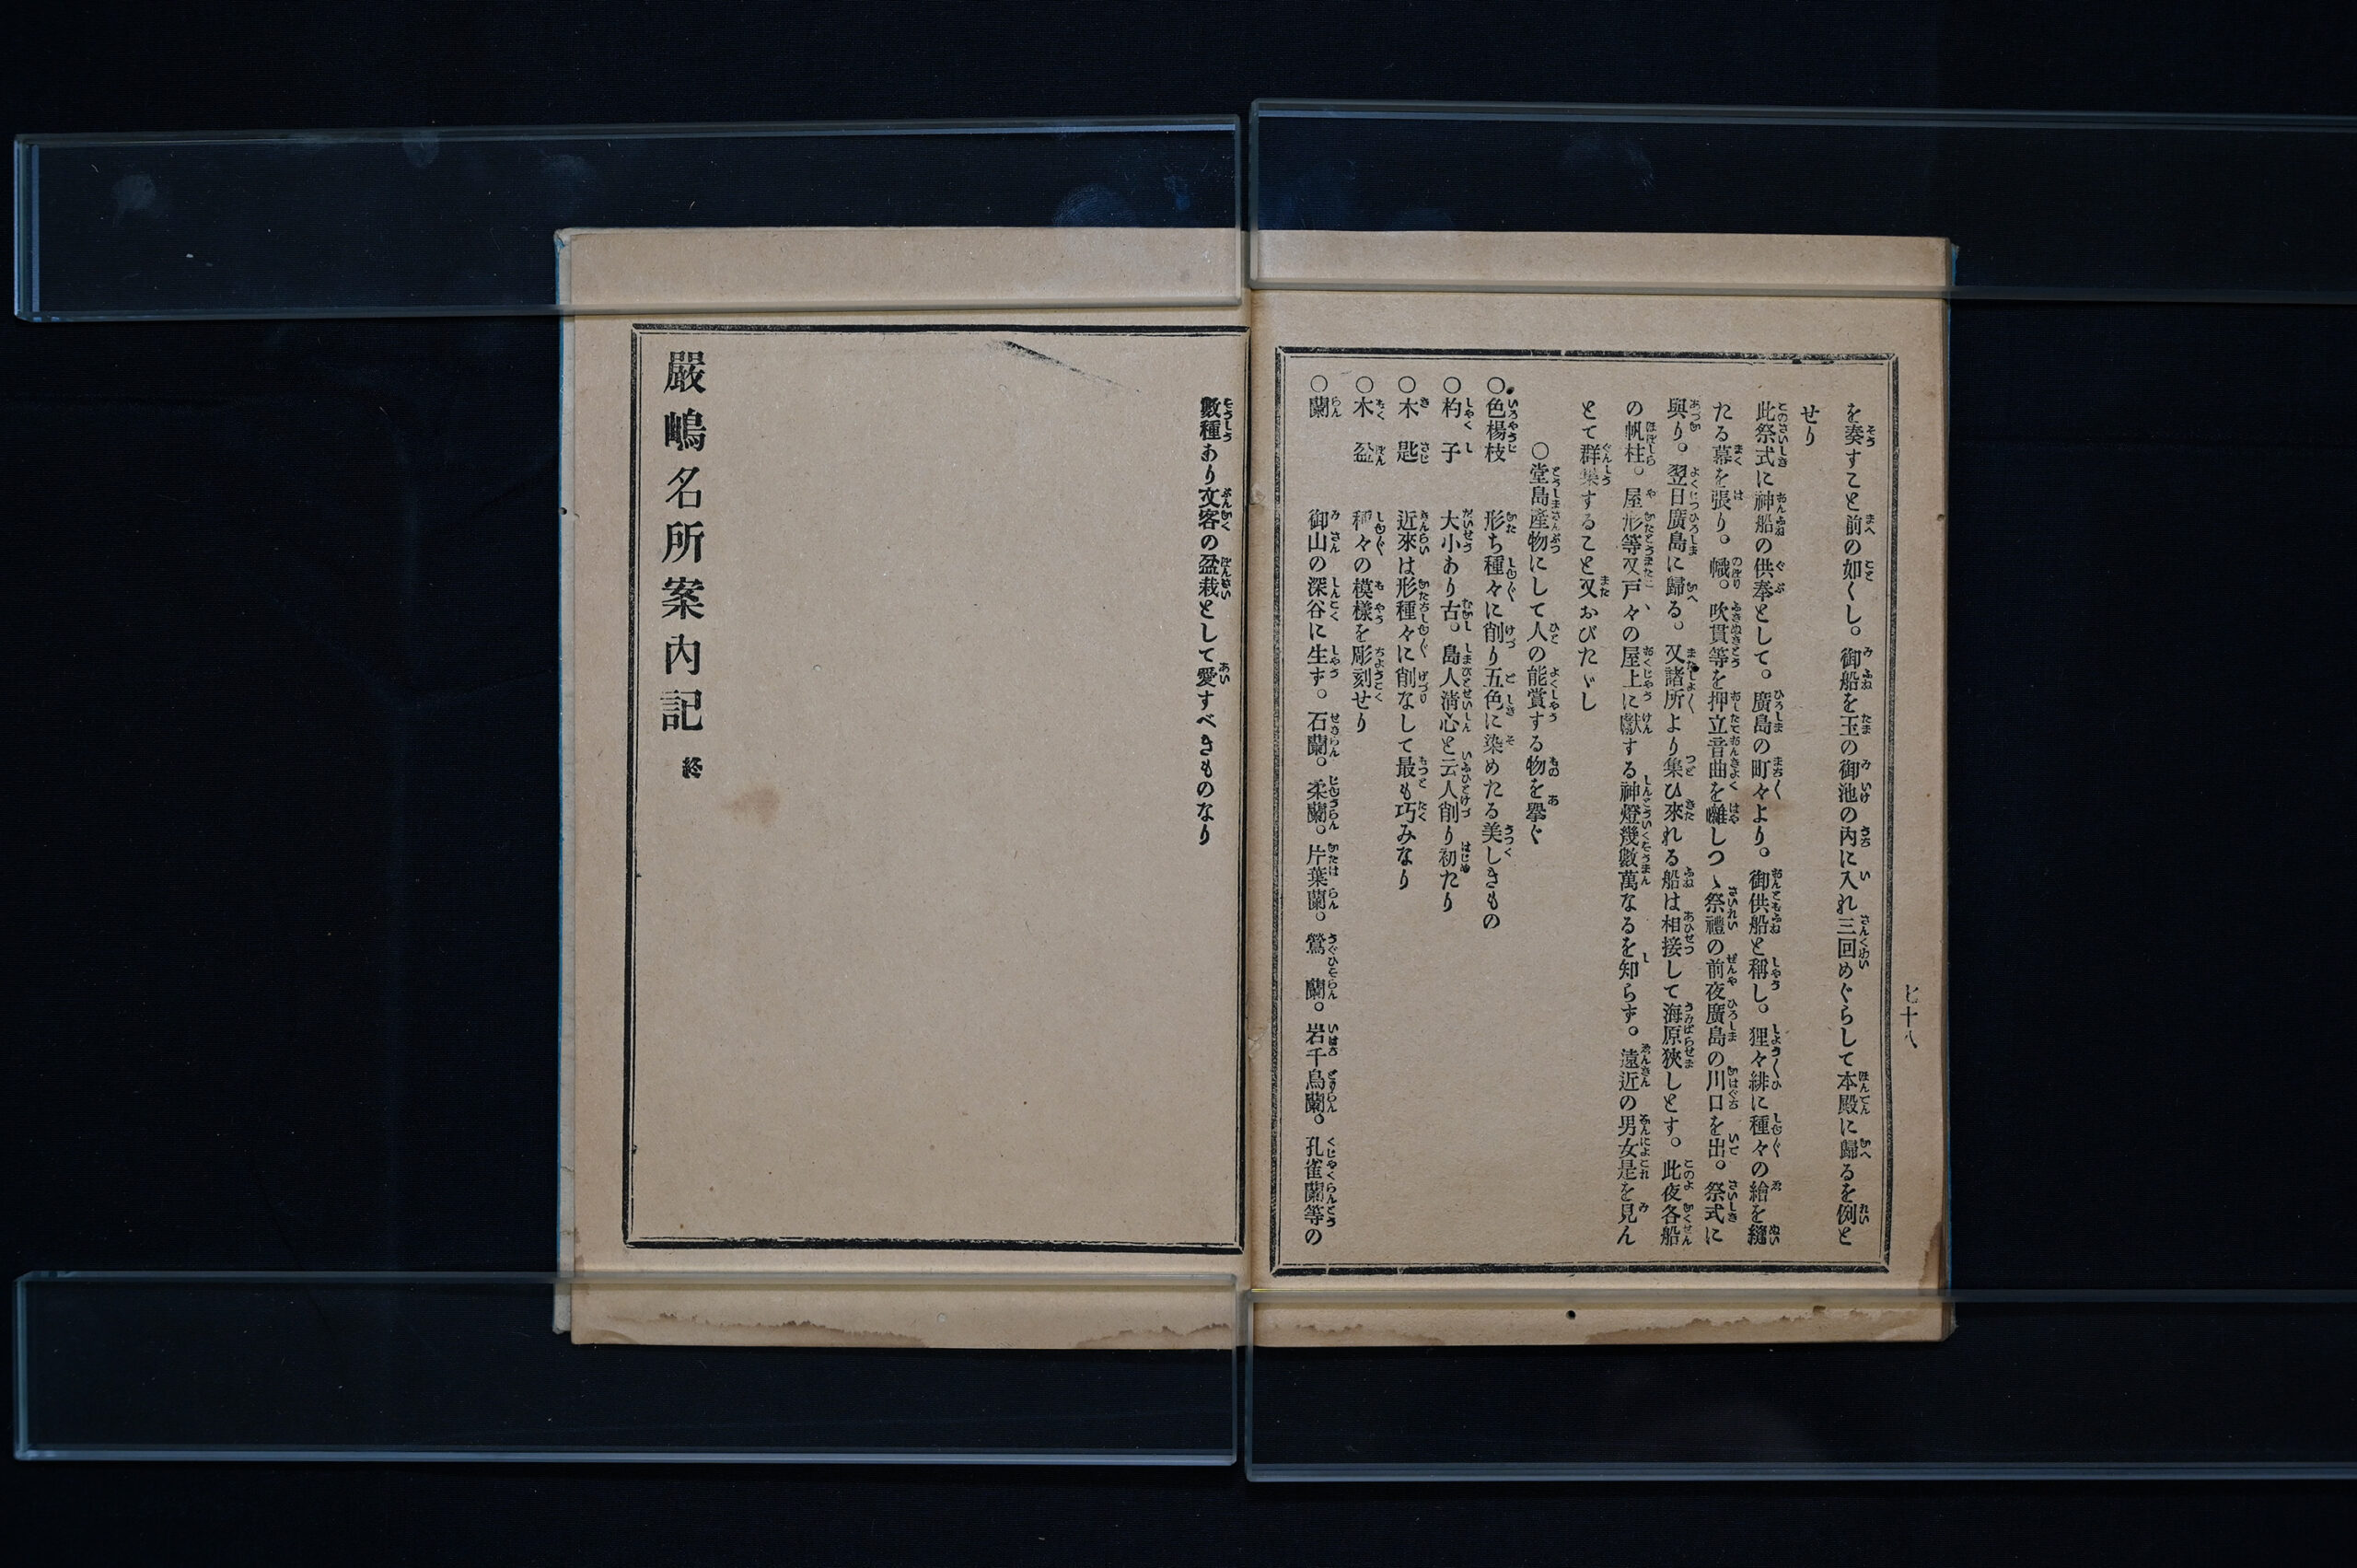 七十八
を奏すこと前の如くし。御船を玉の御池の内に入れ三回めぐらして本殿に歸るを例と
せり
此祭式に神船の供奉として。廣島の町々より。御供船と稱し。狸々緋に種々の繪を縫
たる幕を張り。幟。吹貫等を押立音曲を囃しつゝ祭禮の前夜廣島の川口を出。祭式に
與り。翌日廣島に歸る。又諸所より集ひ來れる船は相接して海原狹しとす。此夜各船
の帆柱。屋形等又戸々の屋上に獻する神燈幾數萬なるを知らず。遠近の男女是を見ん
とて群集すること又おびたゞし
○堂島產物にして人の能賞する物を擧ぐ
○色楊枝 形ち種々に削り五色に染めたる美しきもの
○杓子 大小あり古。島人淸心と云人削り初たり
○木匙 近來は形種々に削なして最も巧みなり
○木盆 種々の模樣を彫刻せり
○蘭 御山の深谷に生ず。石蘭。柔蘭。片葉蘭。鶯蘭。岩千鳥蘭。孔雀蘭等の
數種あり文客の盆栽として愛すべきものなり
嚴嶋名所案內記 終